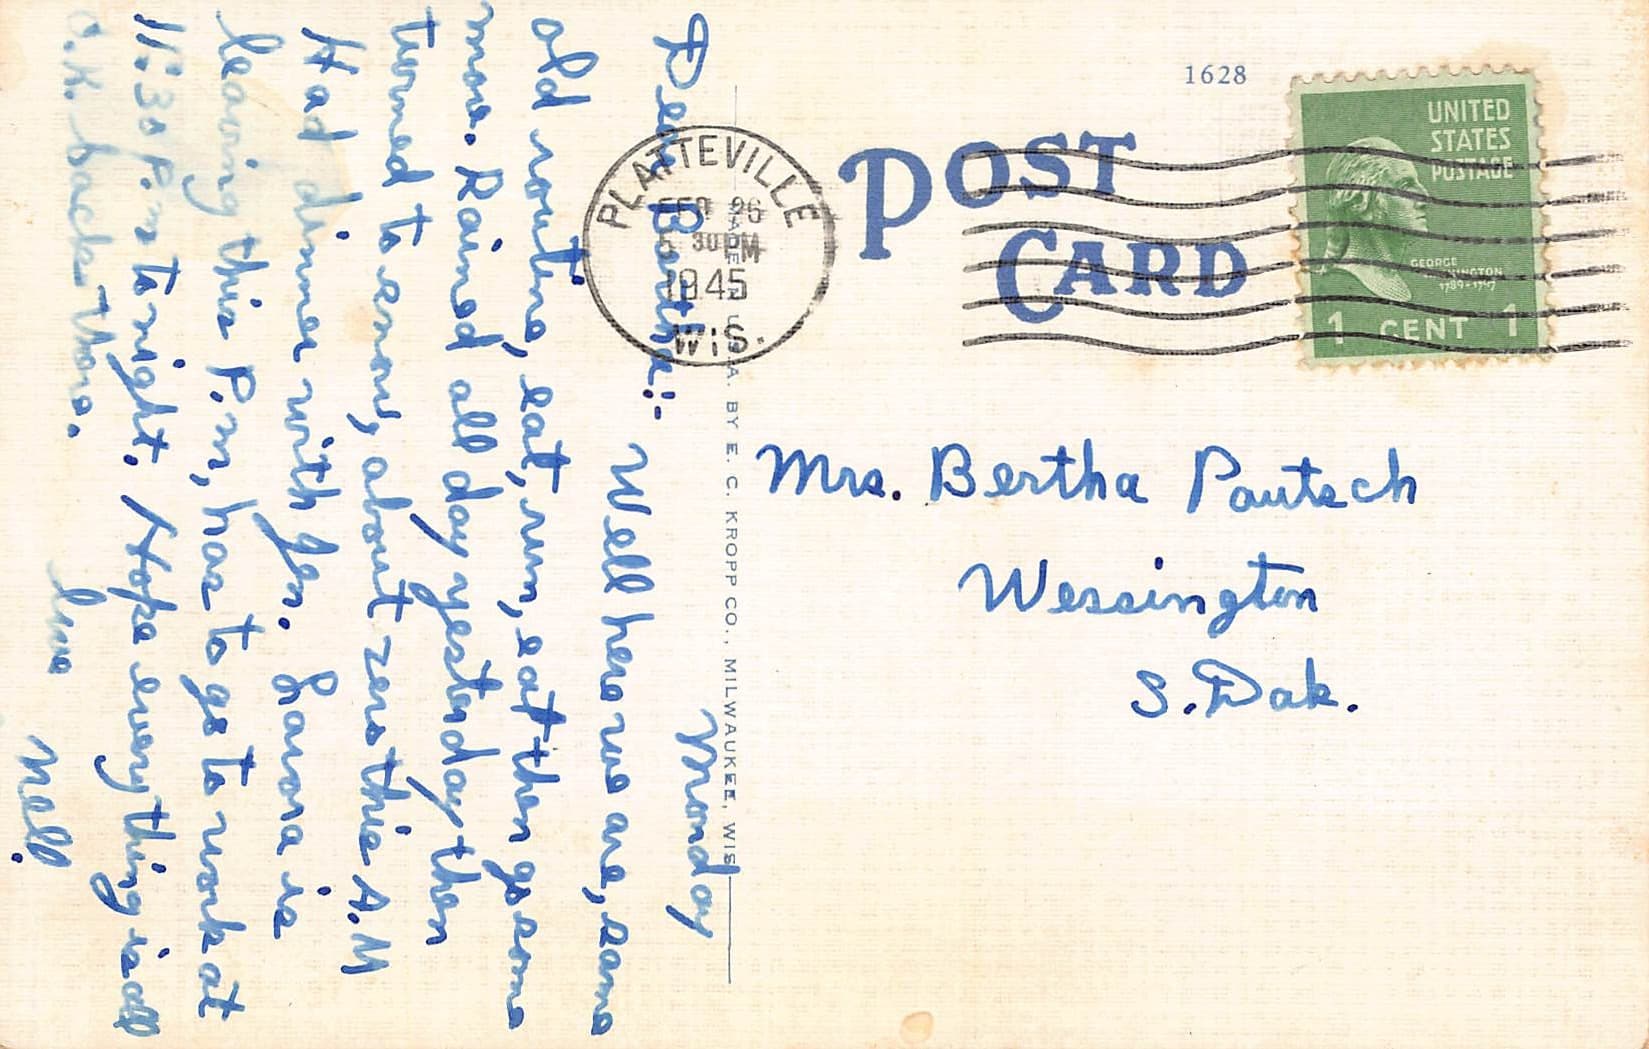 Monday
Dear Bertha:-
Well here we are, same
old routine, eat, run, eat then go some
more. Rained all day yesterday then
turned to snow, about zero this A.M
Had dinner with Jen. Lavora is
leaving this P.m, has to go to work at
11:30 P.m tonight. Hope every thing is all
O.K. back there.
Love
Nell.
1628
POST
CARD
PLATTEVILLE
FEB 26
5 30 PM
1945
WIS.
UNITED
STATES
POSTAGE
GEORGE
WASHINGTON
1789-1797
1 CENT 1
Mrs. Bertha Pautsch
Wessington
S. Dak.
MADE IN U.S.A. BY E. C. KROPP CO., MILWAUKEE, WIS.